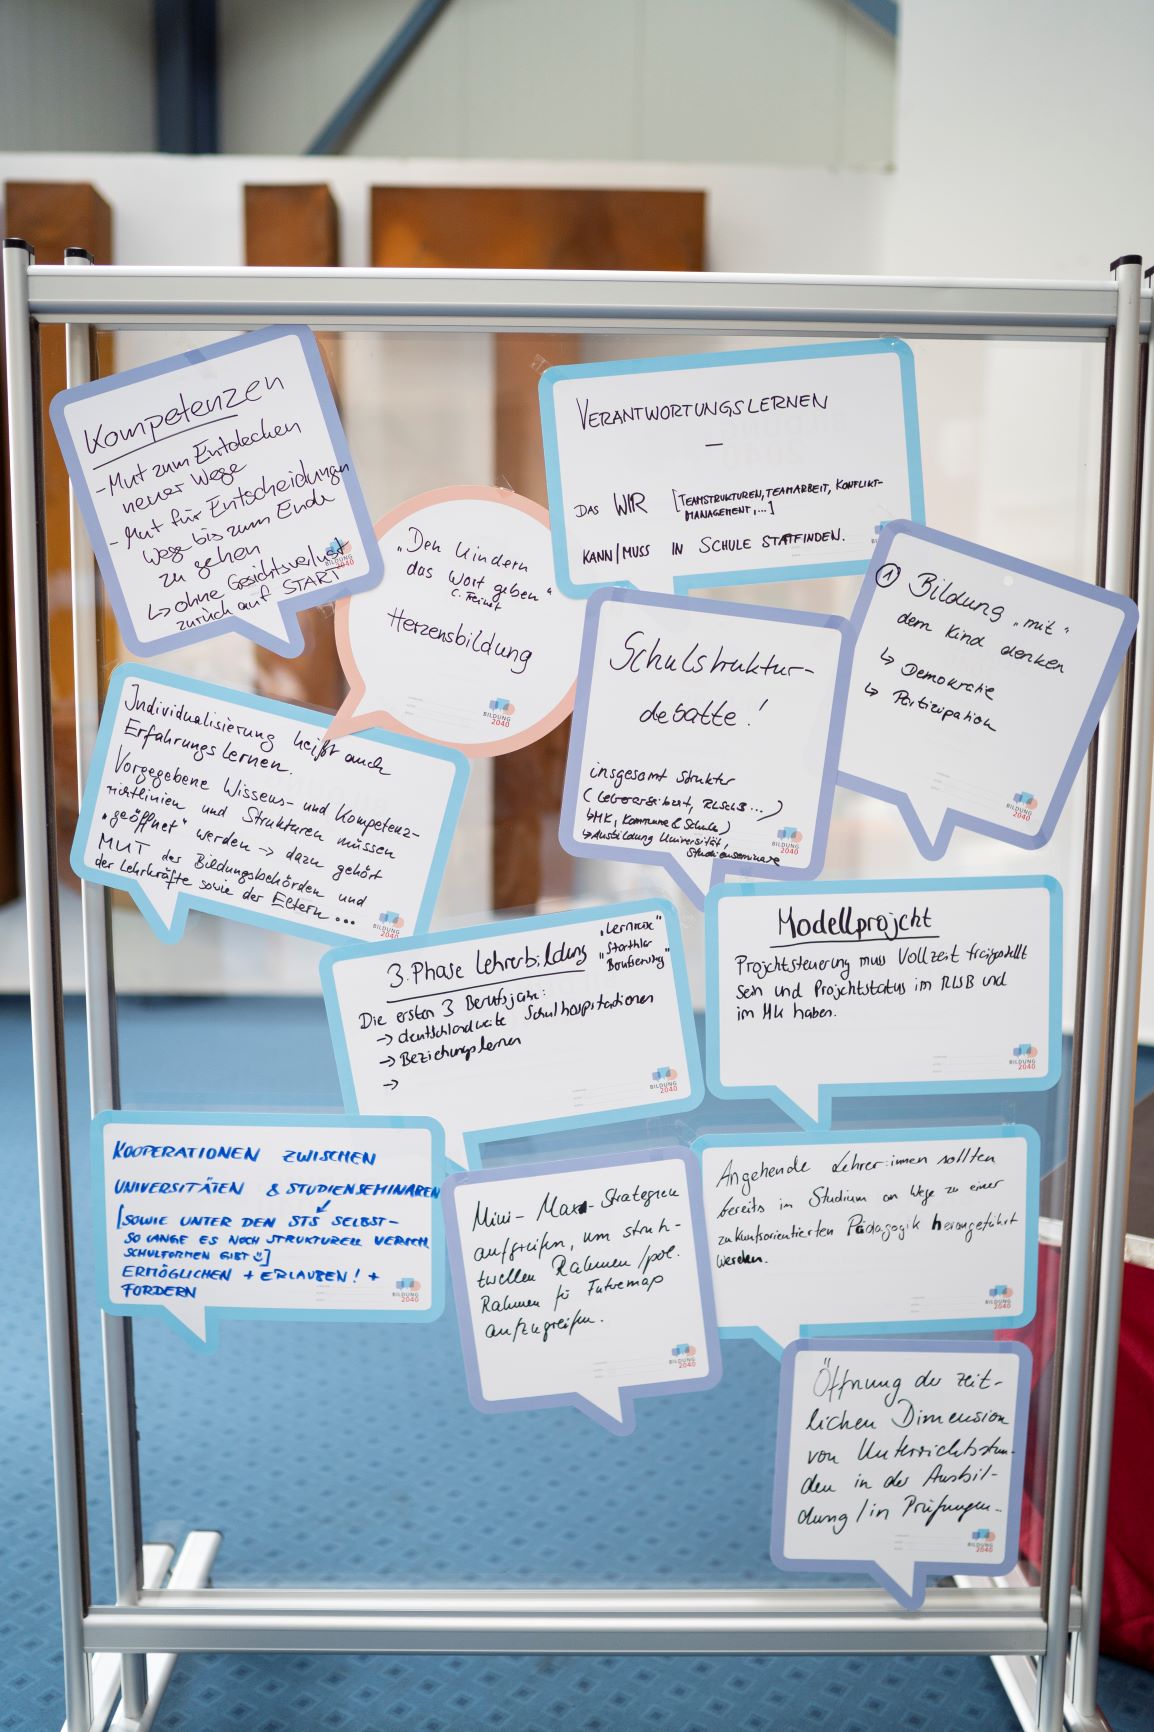 Kompetenzen
- Mut zum Entdecken
neuer Wege
- Mut für Entscheidungen
Wege bis zum Ende
zu gehen
↳ ohne Gesichtsverlust
zurück auf START
VERANTWORTUNGSLERNEN
–
DAS WIR [TEAMSTRUKTUREN, TEAMARBEIT, KONFLIKT-
MANAGEMENT, ...]
KANN/MUSS IN SCHULE STATTFINDEN.
„Den Kindern
das Wort geben“
C. Freinet
Herzensbildung
BILDUNG
2040
① Bildung „mit“
dem Kind denken
↳ Demokratie
↳ Partizipation
BILDUNG
2040
Schulstruktur-
debatte!
insgesamt Struktur
(Lehrerarbeitszeit, RLSchB ...)
↳ MK, Kommune & Schule)
↳ Ausbildung Universität,
Studienseminare
BILDUNG
2040
Individualisierung heißt auch
Erfahrungslernen.
Vorgegebene Wissens- und Kompetenz-
richtlinien und Strukturen müssen
„geöffnet“ werden → dazu gehört
MUT der Bildungsbehörden und
der Lehrkräfte sowie der Eltern ...
BILDUNG
2040
3. Phase Lehrerbildung
„Starthilfe
Die ersten 3 Berufsjahre:
→ deutschlandweite Schulhospitationen
→ Beziehungslernen
→
BILDUNG
2040
Modellprojekt
Projektsteuerung muss Vollzeit freigestellt
sein und Projektstatus im RLSB und
im MK haben.
BILDUNG
2040
KOOPERATIONEN ZWISCHEN
UNIVERSITÄTEN & STUDIENSEMINAREN
[SOWIE UNTER DEN STS SELBST -
SO LANGE ES NOCH STRUKTURELL VERSCH.
SCHULFORMEN GIBT ☺]
ERMÖGLICHEN + ERLAUBEN! +
FORDERN
BILDUNG
2040
Mini-Max-Strategien
aufgreifen, um struk-
turellen Rahmen/pol.
Rahmen für Futuremap
aufzugreifen.
BILDUNG
2040
Angehende Lehrer:innen sollten
bereits im Studium an Wege zu einer
zukunftsorientierten Pädagogik herangeführt
werden.
BILDUNG
2040
Öffnung der zeit-
lichen Dimension
von Unterrichtsstun-
den in der Ausbil-
dung/in Prüfungen.
BILDUNG
2040